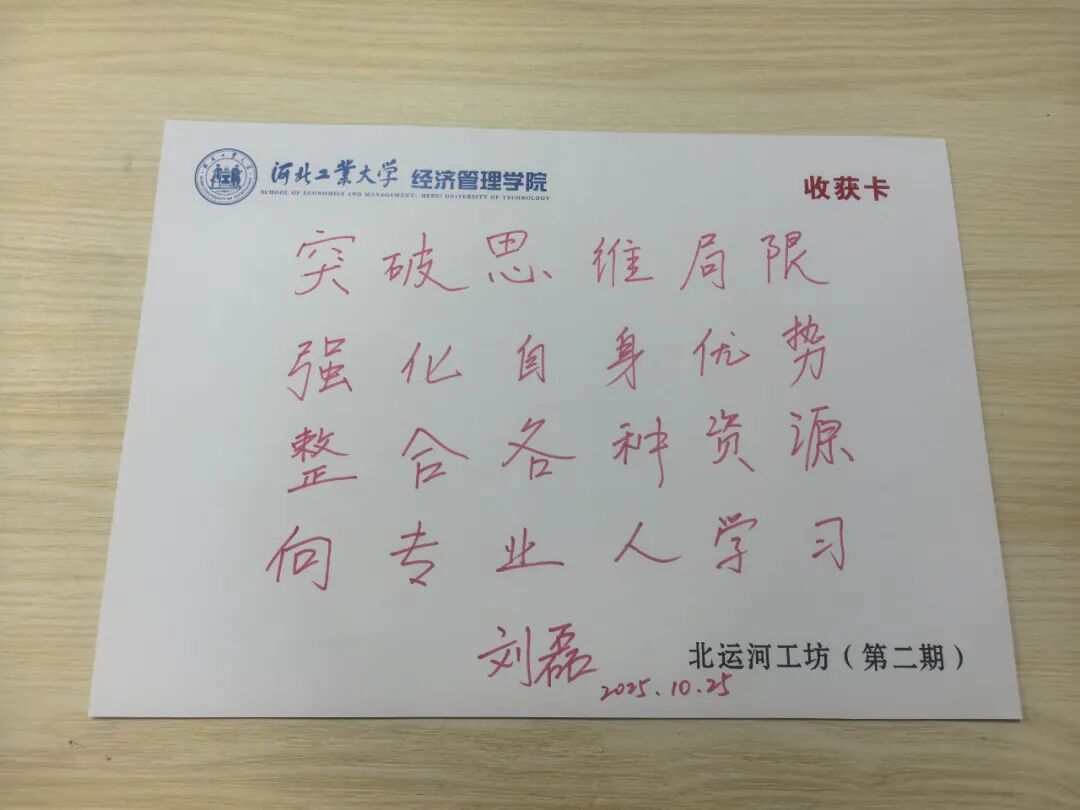 河北工業大学 经济管理学院
SCHOOL OF ECONOMICS AND MANAGEMENT, HEBEI UNIVERSITY OF TECHNOLOGY
收获卡
突破思维局限
强化自身优势
整合各种资源
向专业人学习
刘磊
2025.10.25
北运河工坊（第二期）